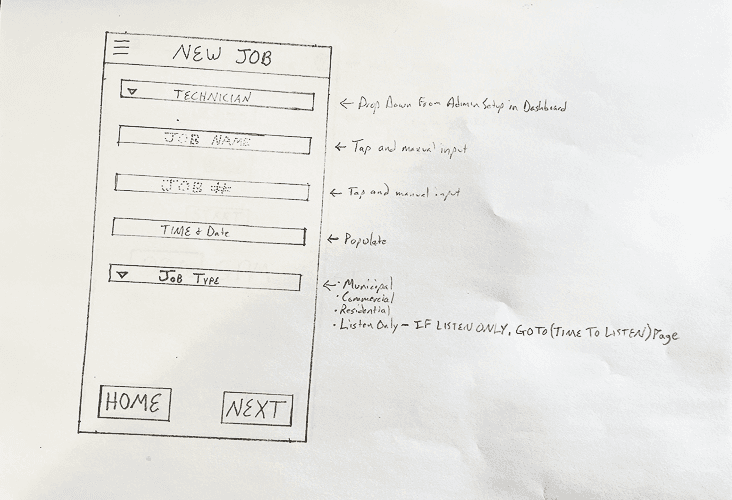 NEW JOB
TECHNICIAN
← Drop Down From Admin Setup in Dashboard
JOB NAME
← Tap and manual input
JOB #
← Tap and manual input
TIME & Date
← Populate
JOB TYPE
← • Municipal
• Commercial
• Residential
• Listen Only - IF LISTEN ONLY, GO TO (TIME TO LISTEN) Page
HOME
NEXT